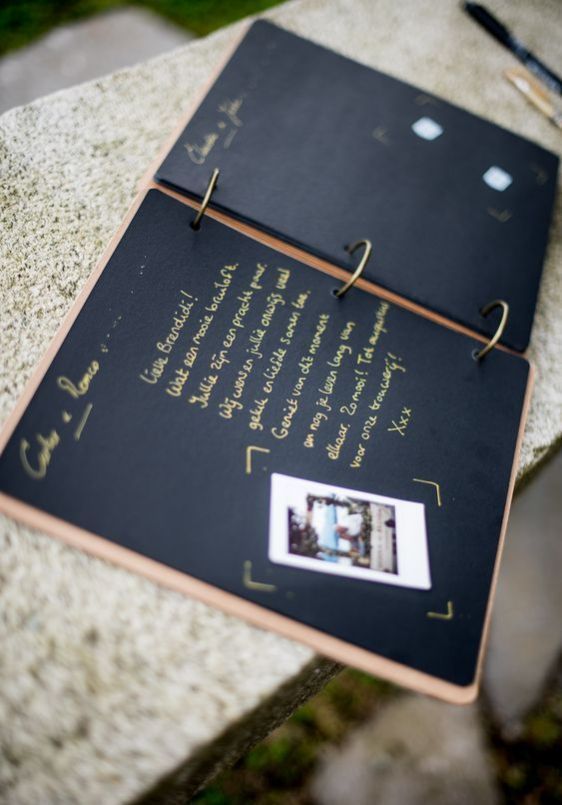 Lieve Brendidi!
Wat een mooie bruiloft.
Jullie zijn een pracht paar.
Wij wensen jullie onwijs veel
geluk en liefde samen toe.
Geniet van dit moment
en nog je leven lang van
elkaar. Zo mooi! Tot augustus
voor onze trouwerij!
Xxx
Remco